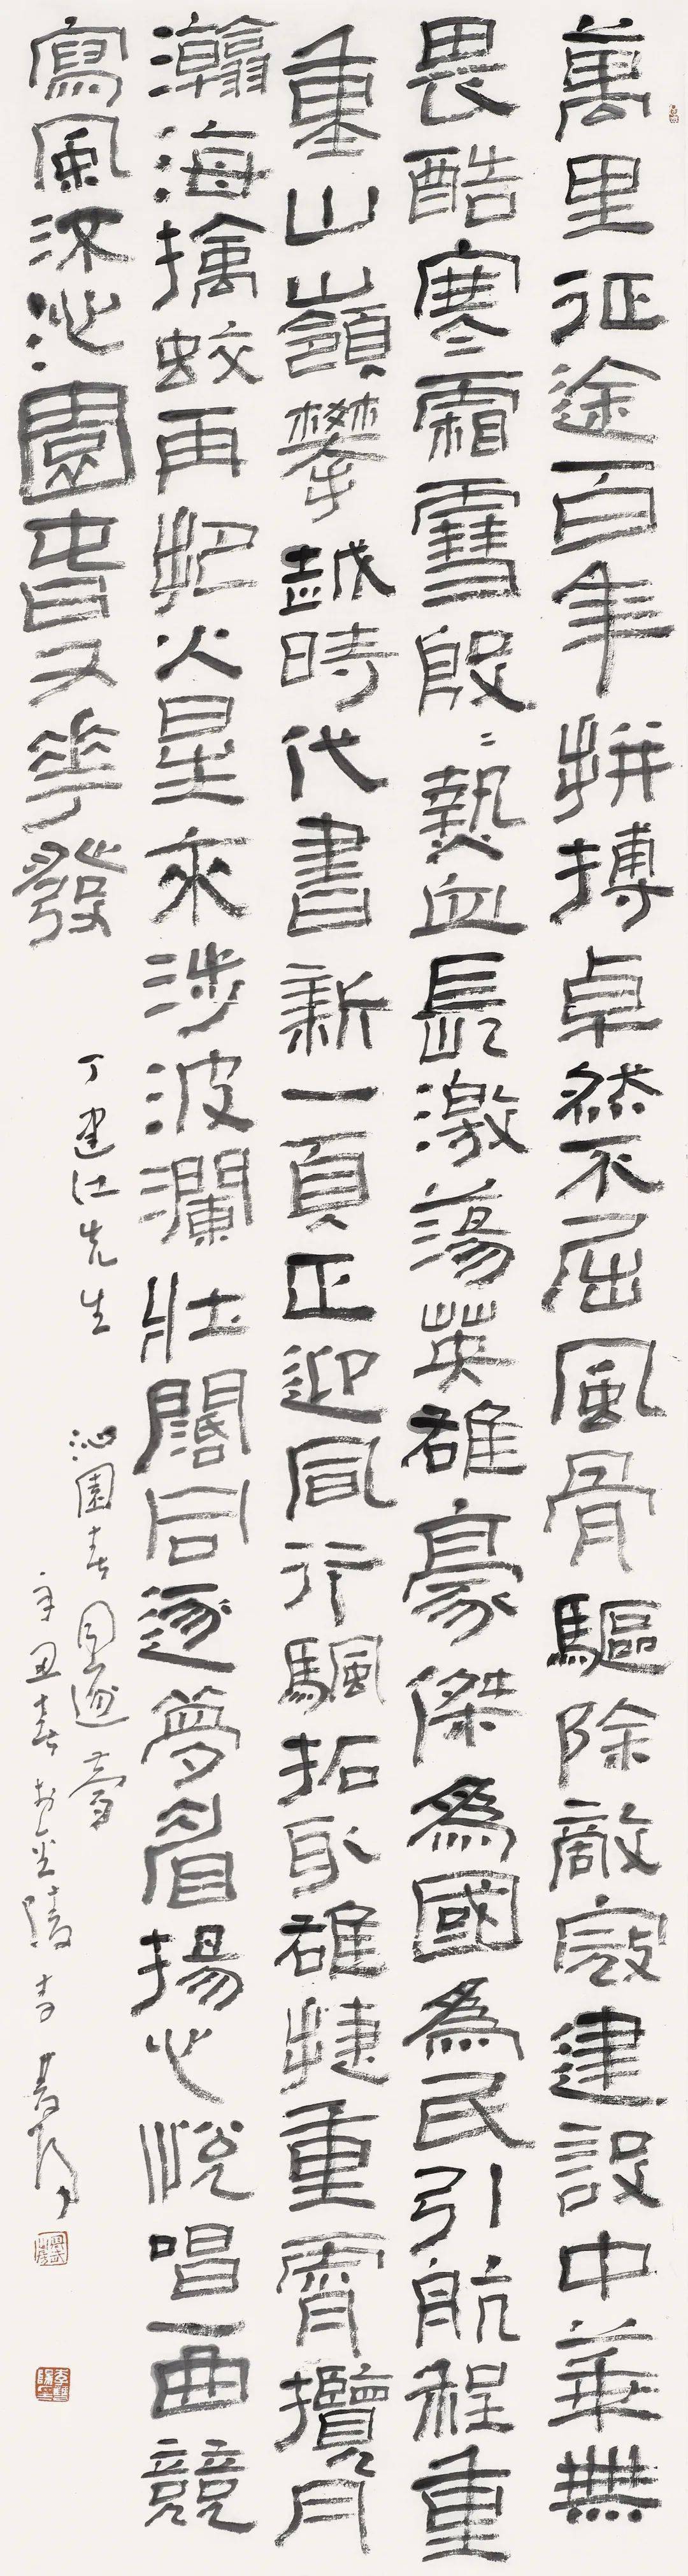 萬里征途百年拼搏卓然不屈風骨驅除敵寇建設中華無
畏酷寒霜雪殷〻熱血長激蕩英雄豪傑為國為民引航程重
重山嶺攀越時代書新一頁正迎風行颿拓取雄捷重霄攬月
瀚海擒蛟再把火星來涉波瀾壯闊同逐夢眉揚心悅唱一曲競
寫風流沁園春又華發
丁建江先生
沁園春同逐夢
辛丑春於金陵